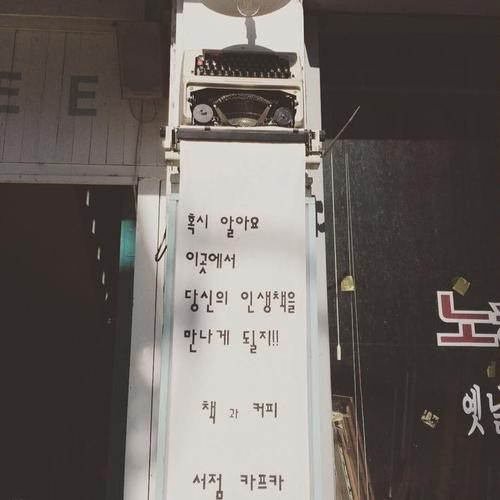 EE
혹시 알아요
이곳에서
당신의 인생책을
만나게 될지!!
책 과 커피
서점 카프카
노
옛날